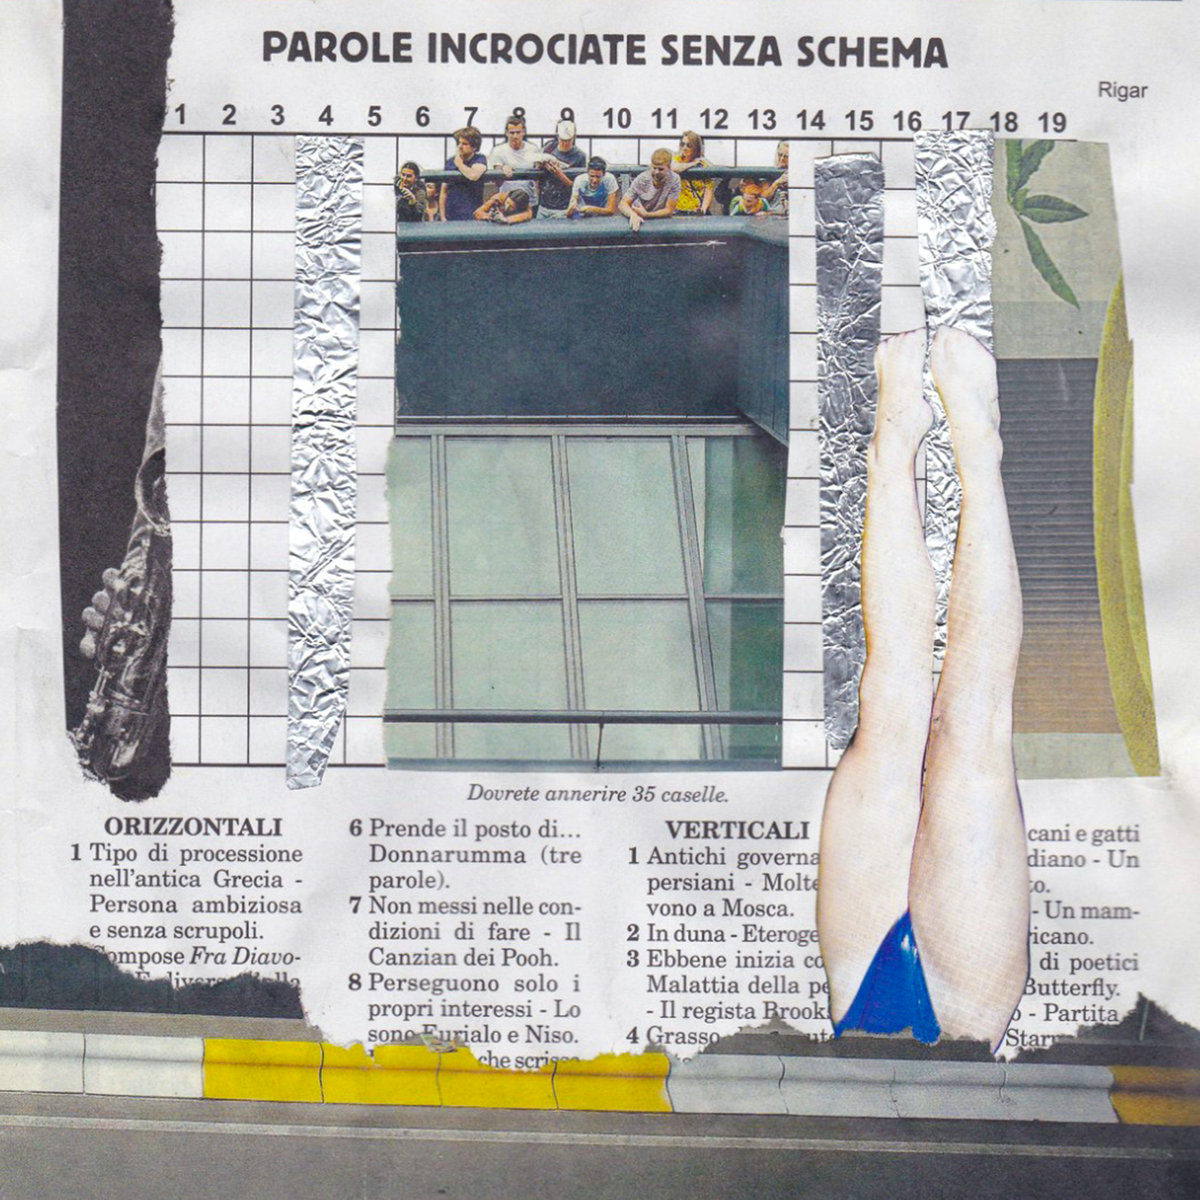 PAROLE INCROCIATE SENZA SCHEMA
Rigar
1 2 3 4 5 6 7 8 9 10 11 12 13 14 15 16 17 18 19
Dovrete annerire 35 caselle.
ORIZZONTALI
1 Tipo di processione
nell'antica Grecia -
Persona ambiziosa
e senza scrupoli.
ompose Fra Diavo-
6 Prende il posto di...
Donnarumma (tre
parole).
7 Non messi nelle con-
dizioni di fare - Il
Canzian dei Pooh.
8 Perseguono solo i
propri interessi - Lo
sono Eurialo e Niso.
che scrisse
VERTICALI
1 Antichi governa
persiani - Molte
vono a Mosca.
2 In duna - Eteroge
3 Ebbene inizia co
Malattia della pe
- Il regista Brook
4 Grasso
cani e gatti
diano - Un
to.
- Un mam-
ricano.
di poetici
Butterfly.
- Partita